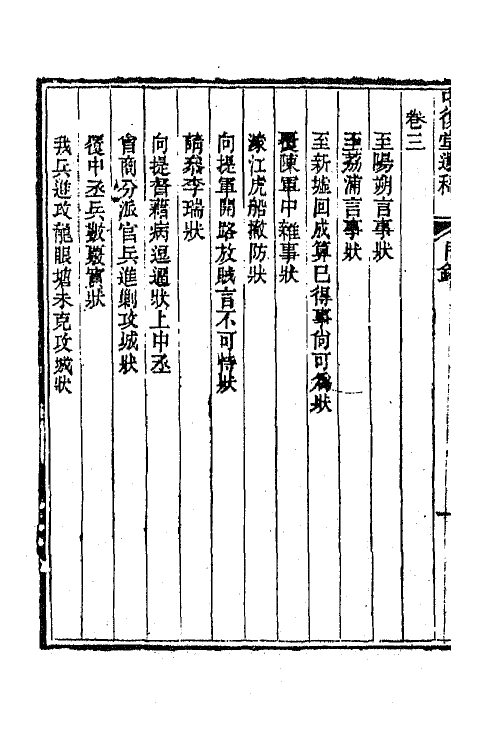 中復堂遺稿 目錄
卷三
至陽朔言事狀
至荔浦言事狀
至新墟回成算已得事尚可為狀
覆陳軍中雜事狀
濛江虎船撤防狀
向提軍開路放賊言不可恃狀
請飛李瑞狀
向提督藉病逗遛狀上中丞
會商分派官兵進剿攻城狀
覆中丞兵數覈實狀
我兵進攻龍眼塘未克攻城狀